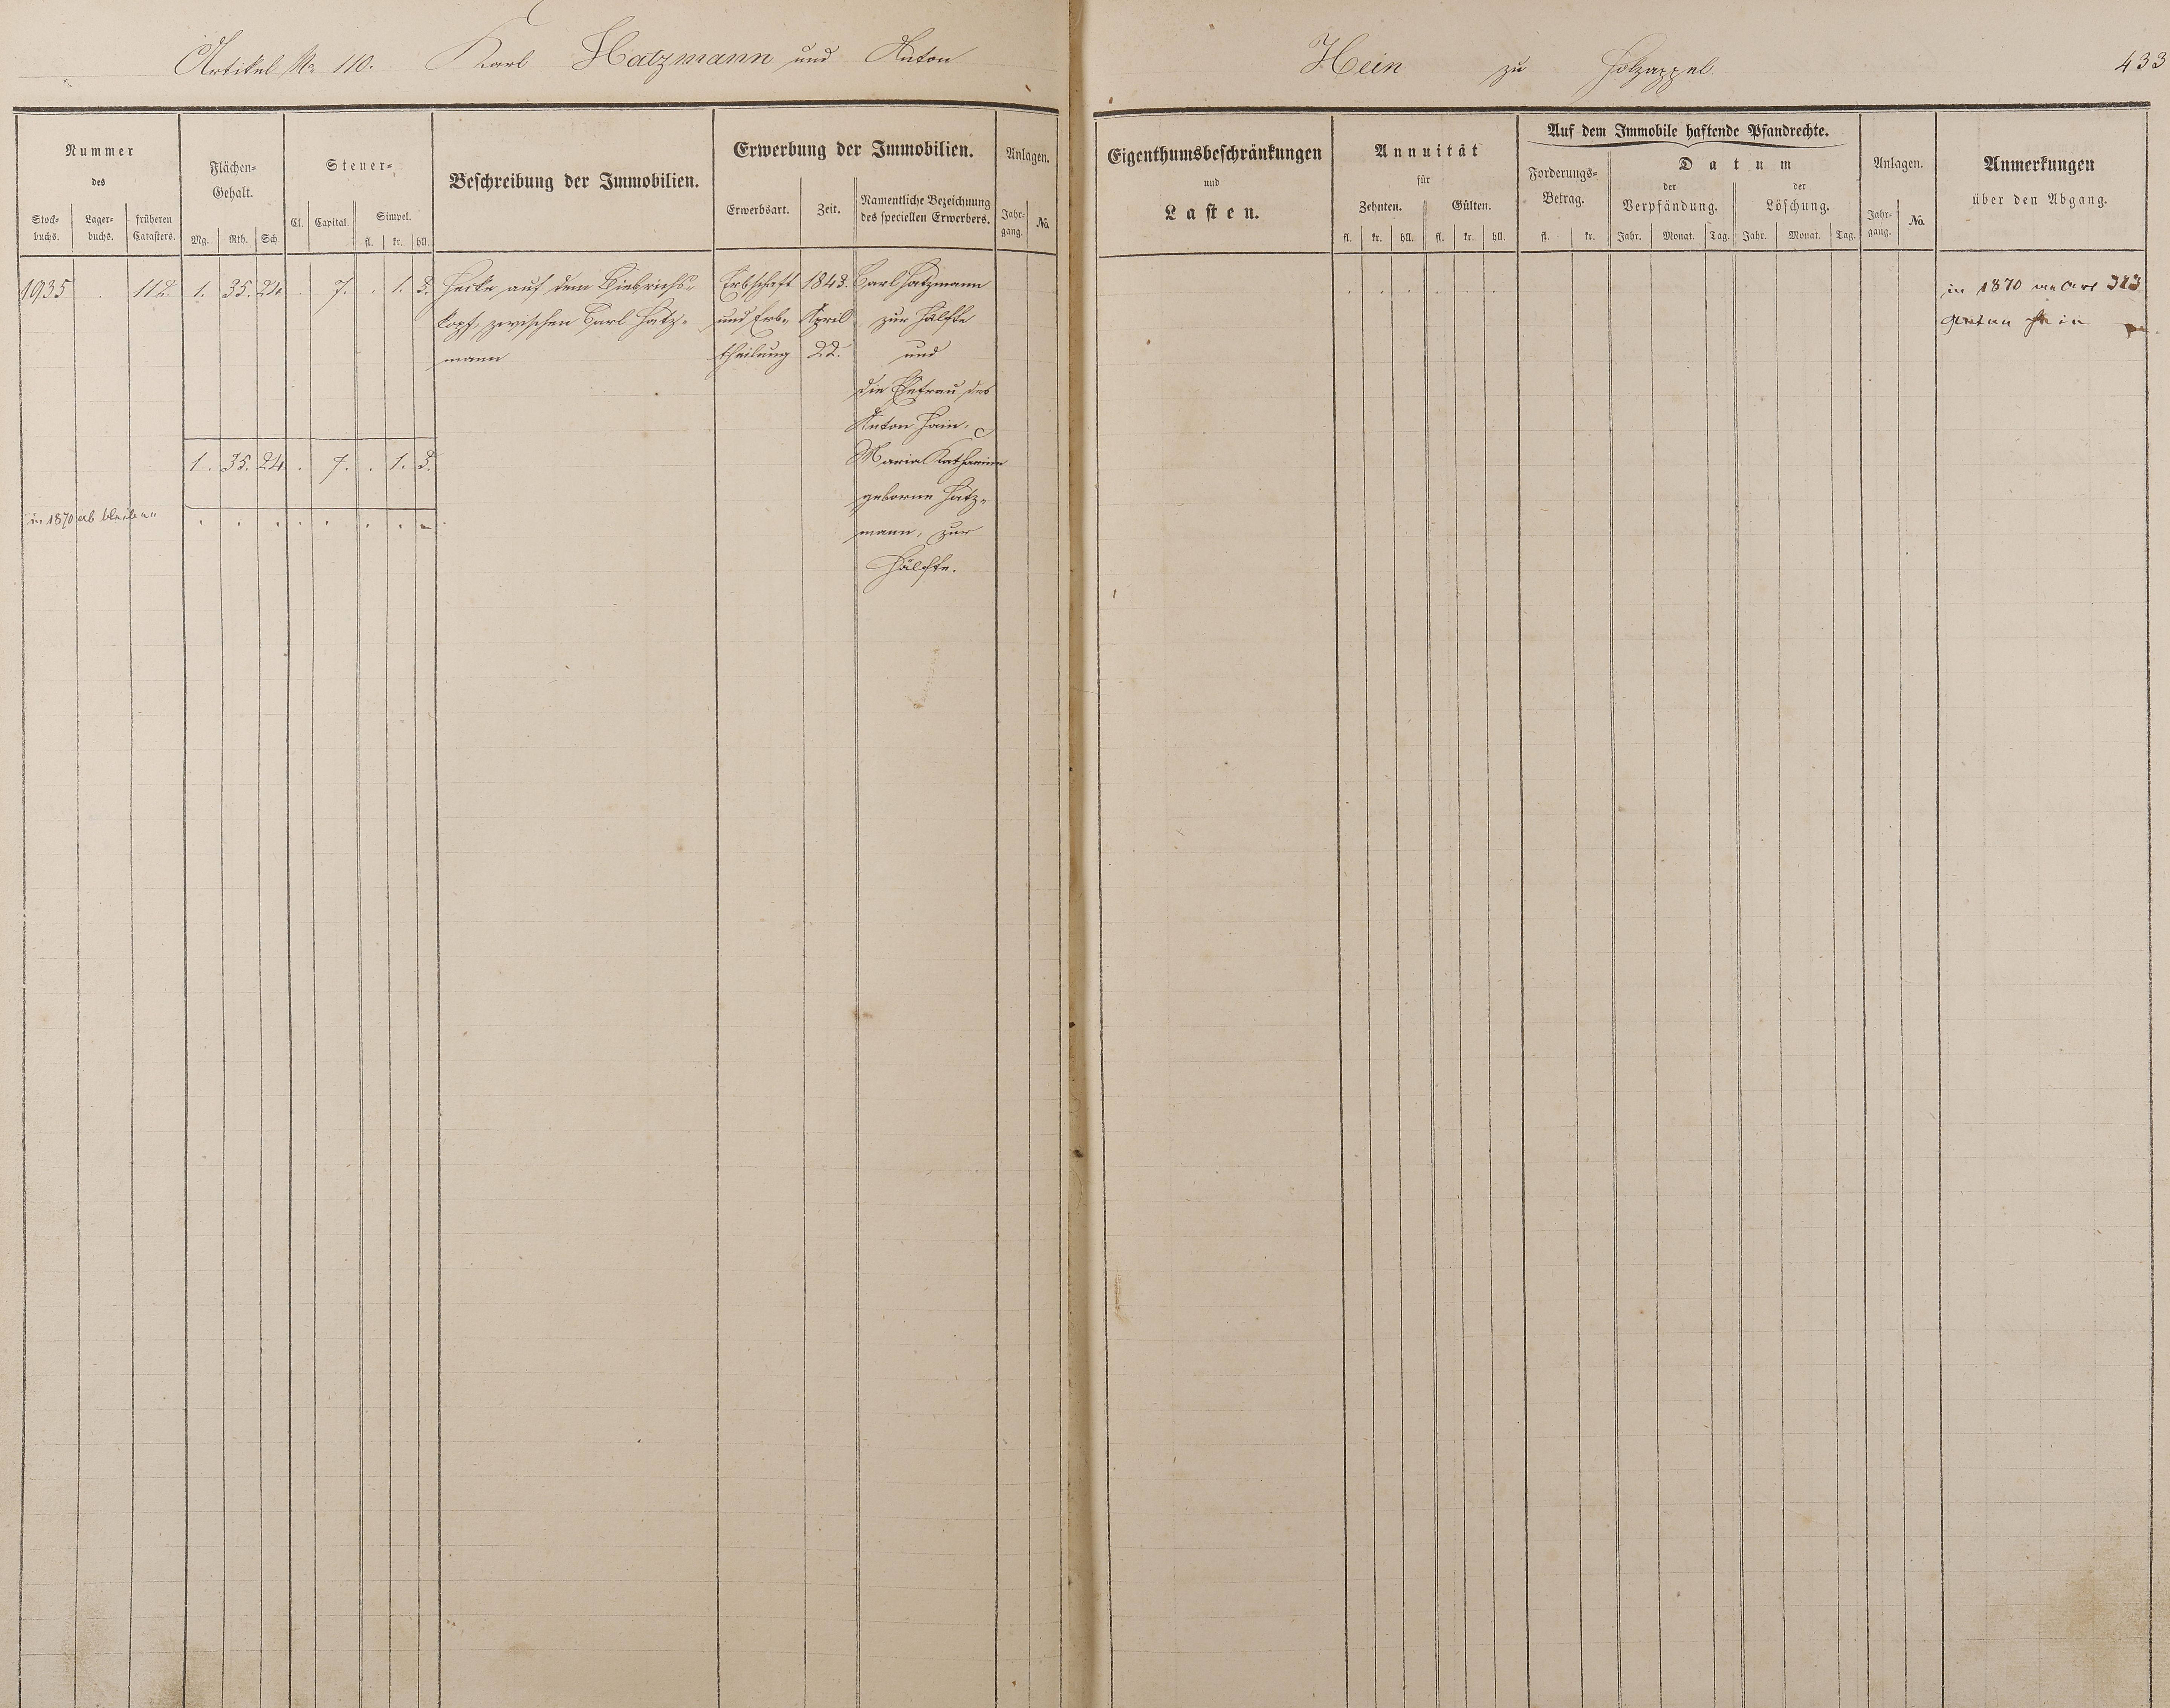 Artikel No 110. Karl Hatzmann und Anton Hein zu Holzappel. 433
Nummer
des
Stock-
buchs.
Lager-
buchs.
früheren
Catasters.
Flächen-
Gehalt.
Mg. Rth. Sch.
Steuer-
Cl. Capital. Simpel.
fl. kr. hll.
Beschreibung der Immobilien.
Erwerbung der Immobilien.
Erwerbsart. Zeit.
Namentliche Bezeichnung
des speciellen Erwerbers.
Anlagen.
Jahr-
gang.
No.
Eigenthumsbeschränkungen
und
Lasten.
Annuität
für
Zehnten. Gülten.
fl. kr. hll. fl. kr. hll.
Auf dem Immobile haftende Pfandrechte.
Forderungs-
Betrag.
fl. kr.
Datum
der
Verpfändung.
der
Löschung.
Jahr. Monat. Tag. Jahr. Monat. Tag.
Anlagen.
Jahr-
gang.
No.
Anmerkungen
über den Abgang.
1935 . 112. 1. 35. 24 . 7. . 1. 3.
Hecke auf dem Biebrichs-
kopf, zwischen Carl Hatz-
mann
Erbschaft
und Erb-
theilung
1843.
April
22.
Carl Hatzmann
zur Hälfte
und
die Ehefrau des
Anton Hein,
Maria Katharine
geborne Hatz-
mann, zur
Hälfte.
in 1870 an Art 323
Anton Hein
1. 35. 24 . 7. . 1. 3.
in 1870 ab bleiben